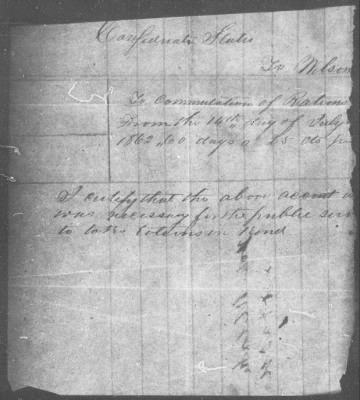 Confederate States
To Wilson
To Commutation of Rations
From the 14th day of July
1862, 60 days @ 25 cts pr
I certify that the above accont
was necessary for the public ser
to